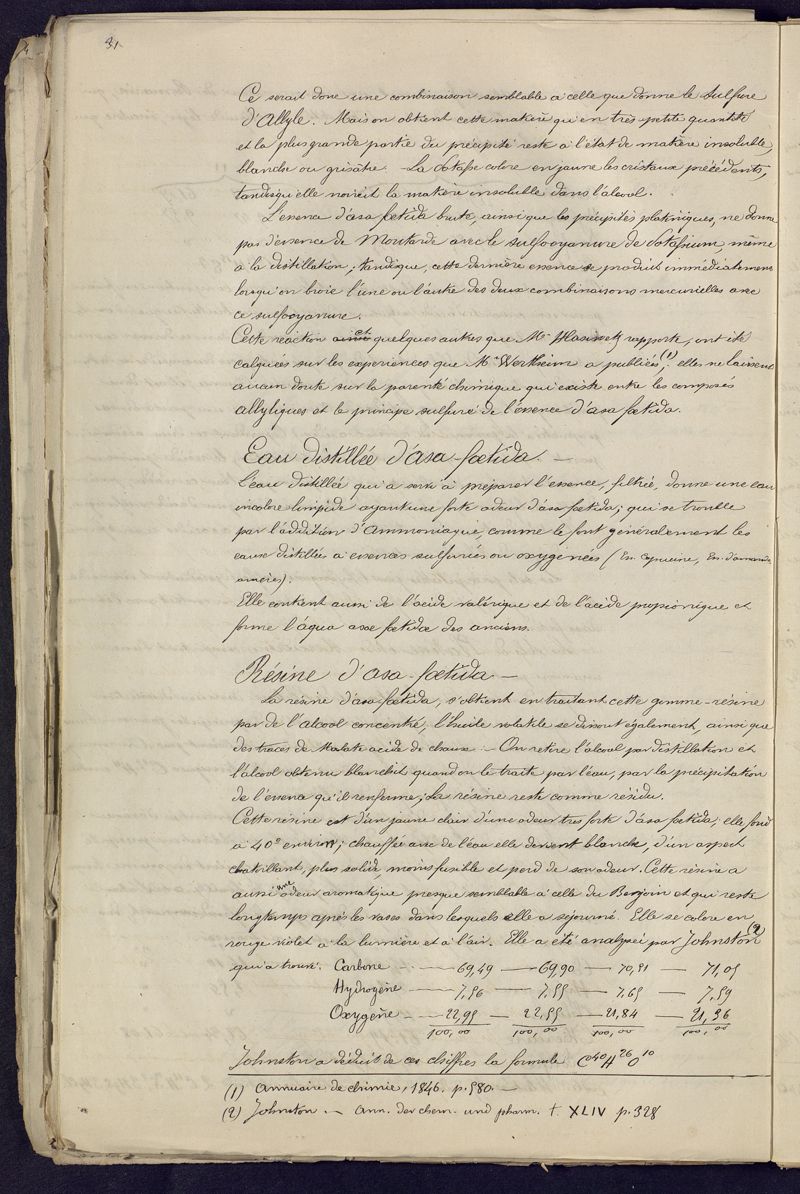 31
Ce serait donc une combinaison semblable à celle que donne le Sulfure
d'Allyle. Mais on obtient cette matière qu'en très petite quantité
et la plus grande partie du précipité reste à l'état de matière insoluble,
blanche ou grisâtre. La Potasse colore en jaune les cristaux précédents,
tandis qu'elle noircit la matière insoluble dans l'alcool.
L'essence d'asa foetida brute, ainsi que les précipités platiniques, ne donne
pas d'essence de Moutarde avec le sulfocyanure de Potassium, même
à la distillation; tandis que, cette dernière essence se produit immédiatement
lorsqu'on broie l'une ou l'autre des deux combinaisons mercurielles avec
ce sulfocyanure.
Cette réaction et quelques autres que Mr Hlasiwetz rapporte, ont été
calquées sur les expériences que Mr Wertheim a publiées (1); elles ne laissent
aucun doute sur la parenté chimique qui existe entre les composés
allyliques et le principe sulfuré de l'essence d'asa foetida.
Eau distillée d'asa-foetida. —
L'eau distillée qui a servi à préparer l'essence, filtrée, donne une eau
incolore limpide ayant une forte odeur d'asa foetida; qui se trouble
par l'addition d'Ammoniaque, comme le font généralement les
eaux distillées à essences sulfurées ou oxygénées (Es. Capucine, Es. d'amandes
amères).
Elle contient aussi de l'acide valérique et de l'acide propionique et
forme l'aqua asae foetidae des anciens.
Résine d'asa-foetida —
La résine d'asa-foetida, s'obtient en traitant cette gomme-résine
par de l'alcool concentré, l'huile volatile se dissout également, ainsi que
des traces de Malate acide de chaux — On retire l'alcool par distillation et
l'alcool obtenu blanchit quand on le traite par l'eau, par la précipitation
de l'essence qu'il renferme; La résine reste comme résidu.
Cette résine est d'un jaune clair d'une odeur très forte d'asa foetida; elle fond
à 40° environ; chauffée avec de l'eau elle devient blanche, d'un aspect
chatoillant, plus solide, moins fusible et perd de son odeur. Cette résine a
aussi une odeur aromatique presque semblable à celle du Benjoin et qui reste
longtemps après les vases dans lesquels elle a séjourné. Elle se colore en
rouge violet à la lumière et à l'air. Elle a été analysée par Johnston (2)
qui a trouvé. Carbone — 69,49 — 69,90 — 70,51 — 71,05
Hydrogène — 7,56 — 7,55 — 7,65 — 7,59
Oxygène — 22,95 — 22,55 — 21,84 — 21,36
100,00 100,00 100,00 100,00
Johnston a déduit de ces chiffres la formule C⁴⁰H²⁶O¹⁰
(1) Annuaire de chimie, 1846. p. 580. —
(2) Johnston. — Ann. der chem. und pharm. t. XLIV p. 328